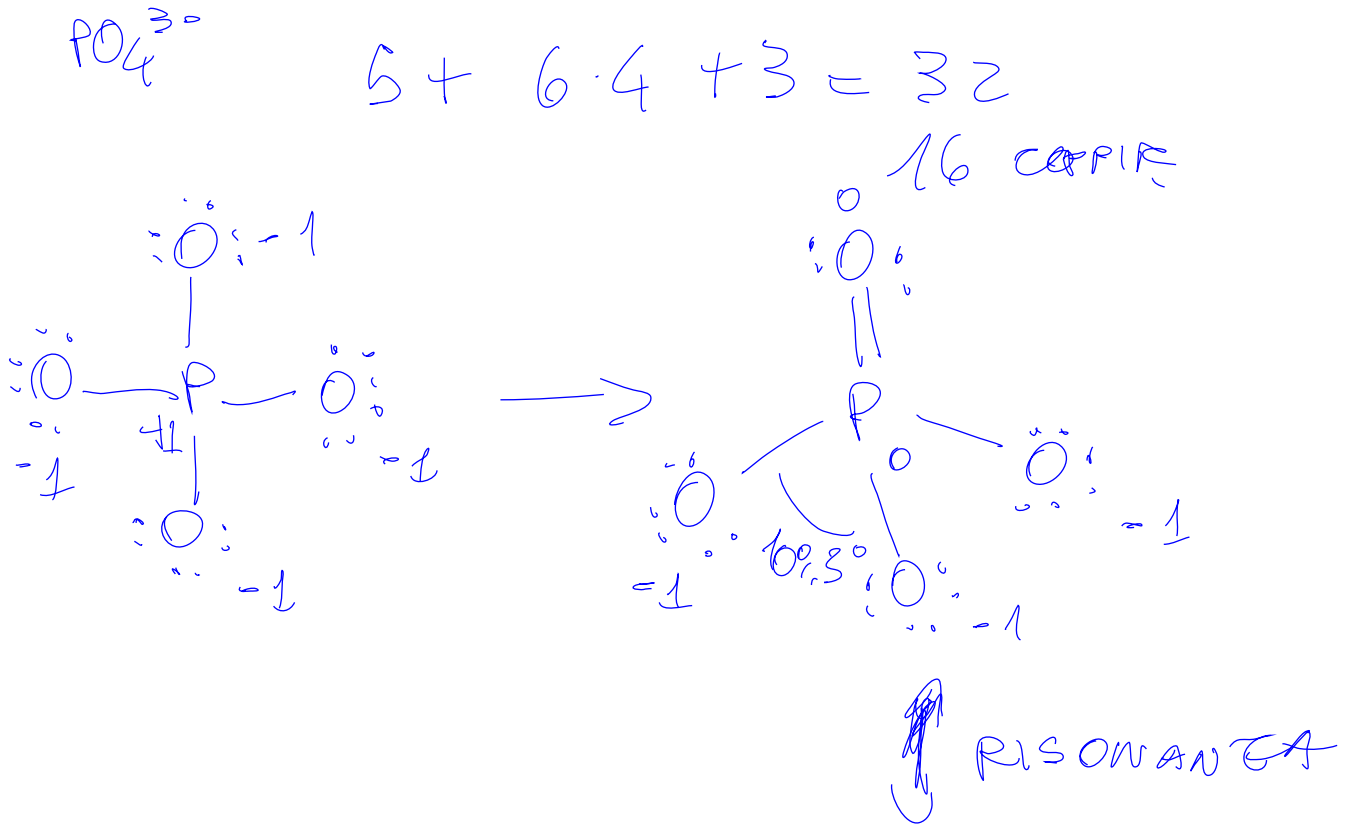 PO4 3-
5 + 6·4 + 3 = 32
16 COPPIE
O -1
O P O
+1
-1 -1
O -1
0
O
P
0
O O
-1 -1
O -1
RISONANZA